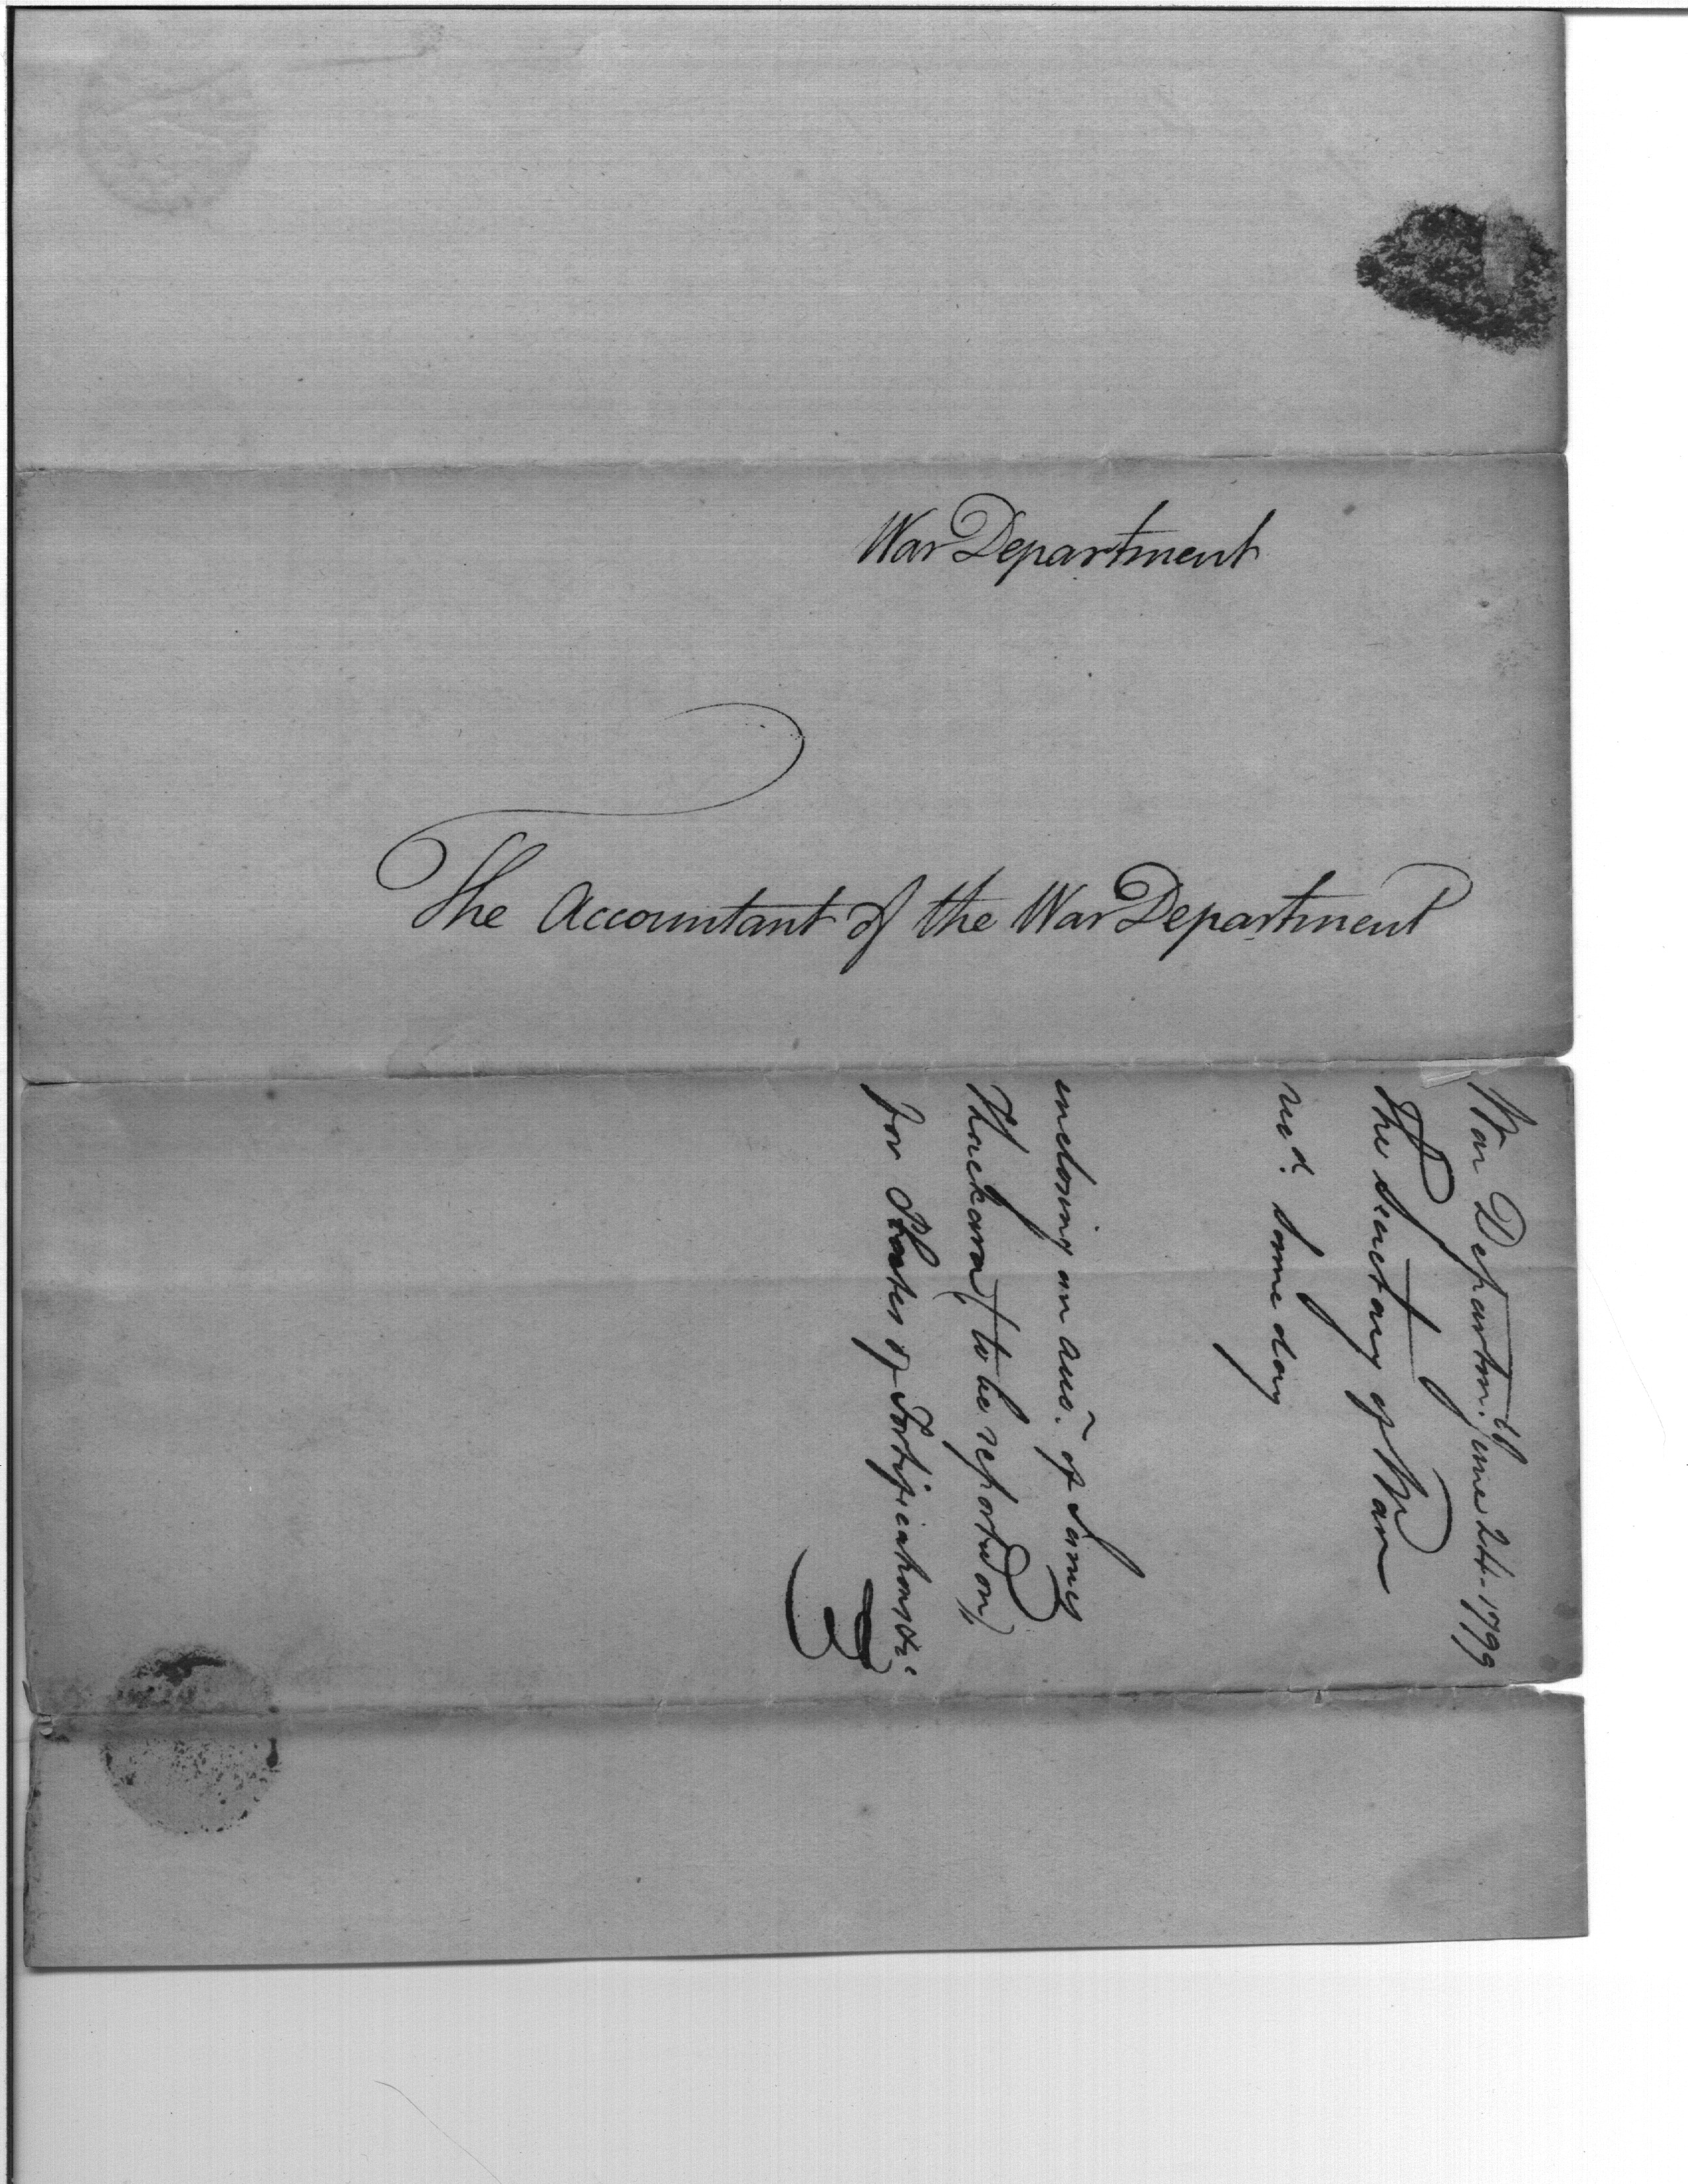 War Department
The Accountant of the War Department
War Departmt. June 24. 1799
The Secretary of War
recd. Same day
inclosing an acco. of James
Thackara (to be reported on)
for Plates of Fortifications &c